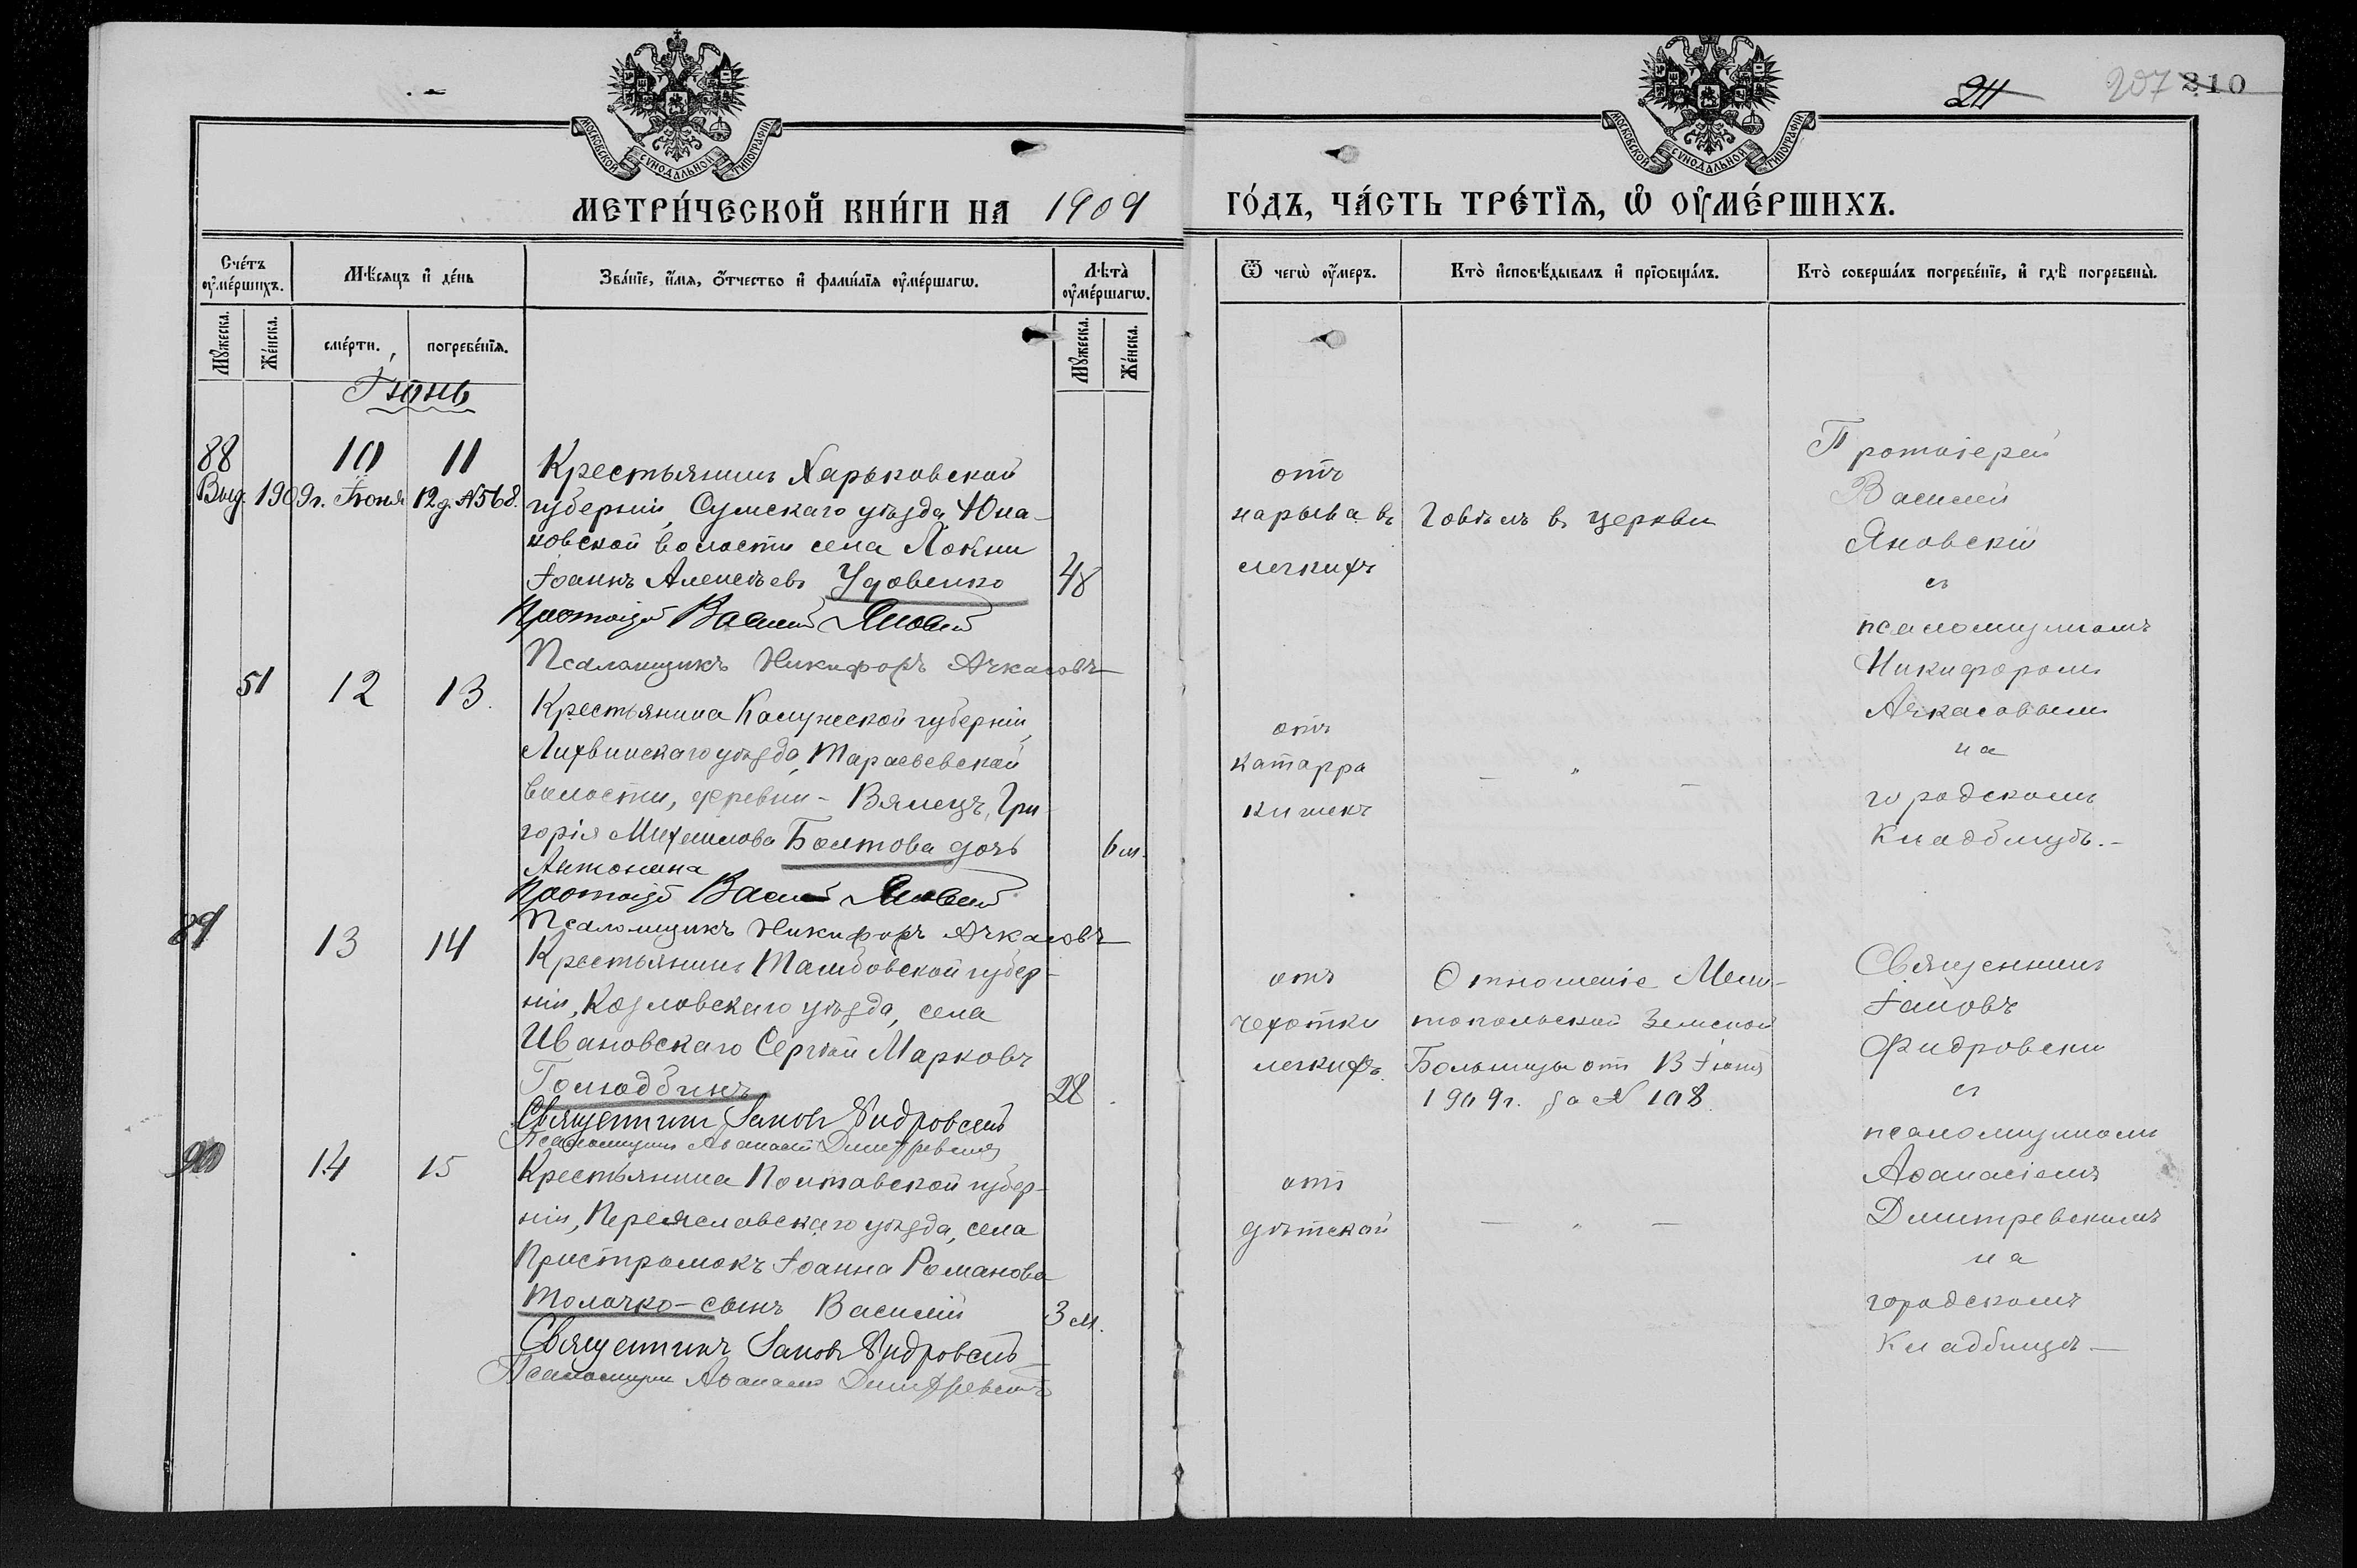 211
207 210
МОСКОВСКОЙ СѴНОДАЛЬНОЙ ТИПОГРАФІИ
МОСКОВСКОЙ СѴНОДАЛЬНОЙ ТИПОГРАФІИ
МЕТРИ́ЧЕСКОЙ КНИ́ГИ НА 1909
ГО́ДЪ, ЧА́СТЬ ТРЕ́ТЇѦ, Ѡ ОУМЕ́РШИХЪ.
Сче́тъ оуме́ршихъ.
Мѣ́сяцъ и де́нь
Зва́нїе, и́мя, о́тчество и фами́лїя оуме́ршагѡ.
Лѣта̀ оуме́ршагѡ.
Ѿ чегѡ̀ оу́меръ.
Кто̀ исповѣ́дывалъ и прїѡбща́лъ.
Кто̀ соверша́лъ погребе́нїе, и гдѣ̀ погребены̀.
Мꙋ́жеска.
Же́нска.
сме́рти.
погребе́нїя.
Мꙋ́жеска.
Же́нска.
Іюнь
88
10 11
Выд. 1909 г. Іюня 12 д. №568.
Крестьянинъ Харьковской
губерніи, Сумскаго уѣзда, Юна-
ковской волости села Локни
Іоаннъ Алексѣевъ Удовенко
48
Протоіерей Василій Яновскій
Псаломщикъ Никифоръ Ачкасовъ
отъ
нарыва въ
легкихъ
Говѣлъ въ церкви
Протоіерей
Василій
Яновскій
съ
псаломщикомъ
Никифоромъ
Ачкасовымъ
на
городскомъ
Кладбищѣ.-
51
12 13.
Крестьянина Калужской губерніи,
Лихвинскаго уѣзда,
волости, деревни - Вялецъ, Гри
горія Михаилова Болтова дочь
Антонина
6 м.
Протоіерей Василій Яновскій
Псаломщикъ Никифоръ Ачкасовъ
отъ
катарра
кишекъ
— " —
89
13 14
Крестьянинъ Тамбовской губер-
ніи, Козловскаго уѣзда, села
Ивановскаго Сергѣй Марковъ
28
Священникъ Іаковъ
Псаломщикъ Аѳанасій Димитревскій
отъ
чахотки
легкихъ.
Отношеніе Мели-
топольской Земской
Больницы отъ 13 Іюня
1909 г. за № 108.
Священникъ
Іаковъ
съ
псаломщикомъ
Аѳанасіемъ
Димитревскимъ
на
городскомъ
Кладбищѣ —
90
14 15
Крестьянина Полтавской губер-
ніи, Переяславскаго уѣзда, села
Пристромокъ Іоанна Романова
Толочко - сынъ Василій
3 м.
Священникъ Іаковъ
Псаломщикъ Аѳанасій Димитревскій
отъ
дѣтской
— " —